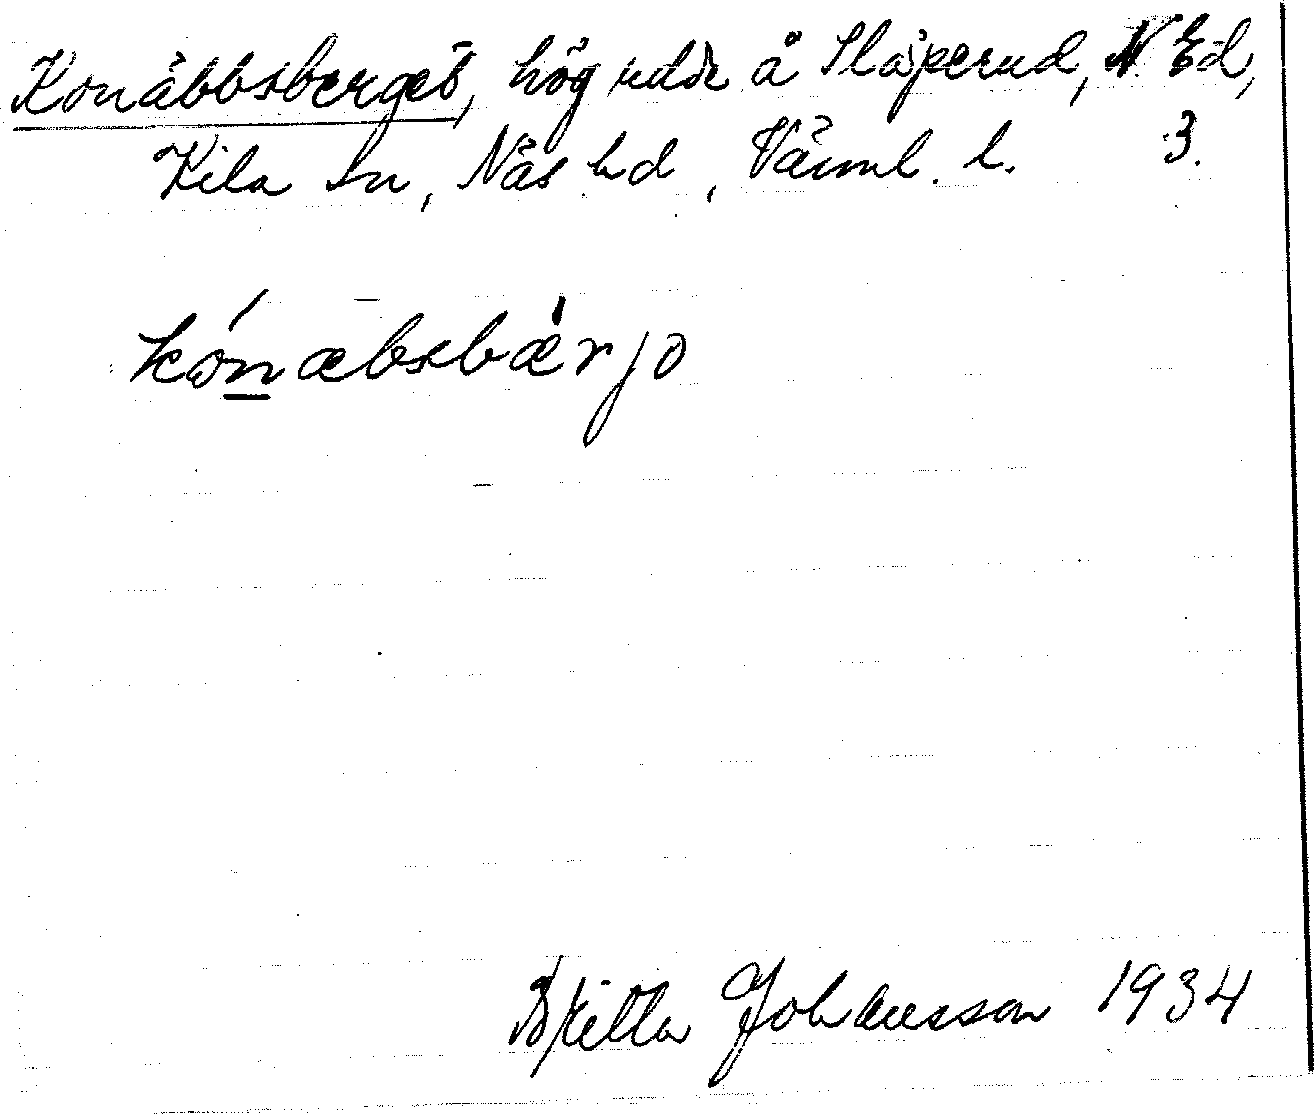 Konäbbsberget, hög udde å Släperud, N. Ed,
Kila sn, Näs hd, Värml. l. 3.
kónæbsbæ̀rjo
Britta Johansson 1934